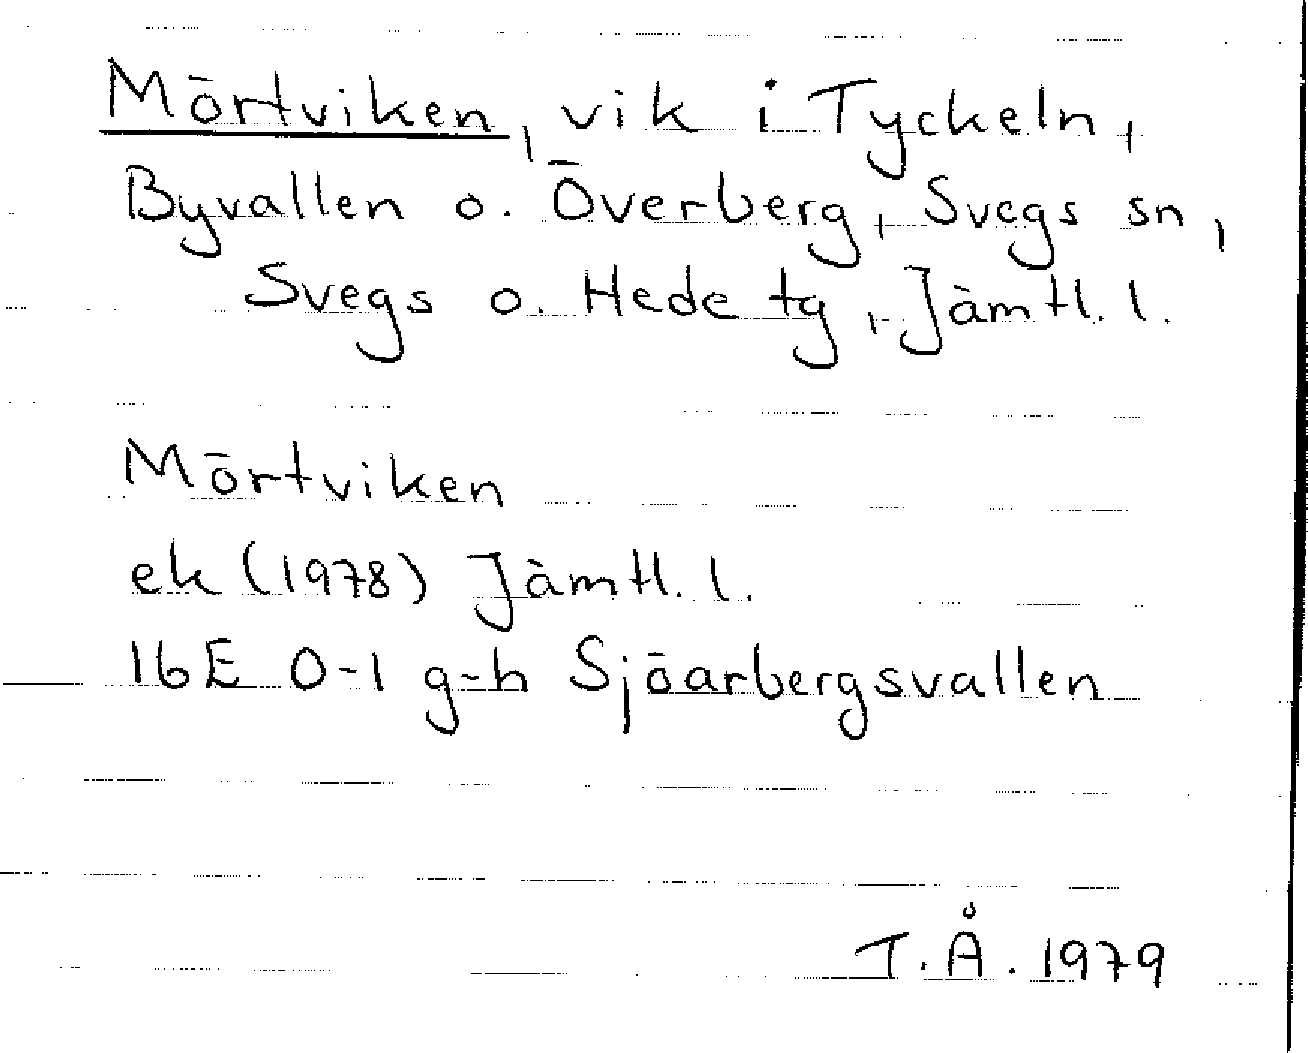 Mörtviken, vik i Tyckeln,
Byvallen o. Överberg, Svegs sn,
Svegs o. Hede tg, Jämtl. l.
Mörtviken
ek (1978) Jämtl. l.
16E 0-1 g-h Sjöarbergsvallen
T.Å. 1979